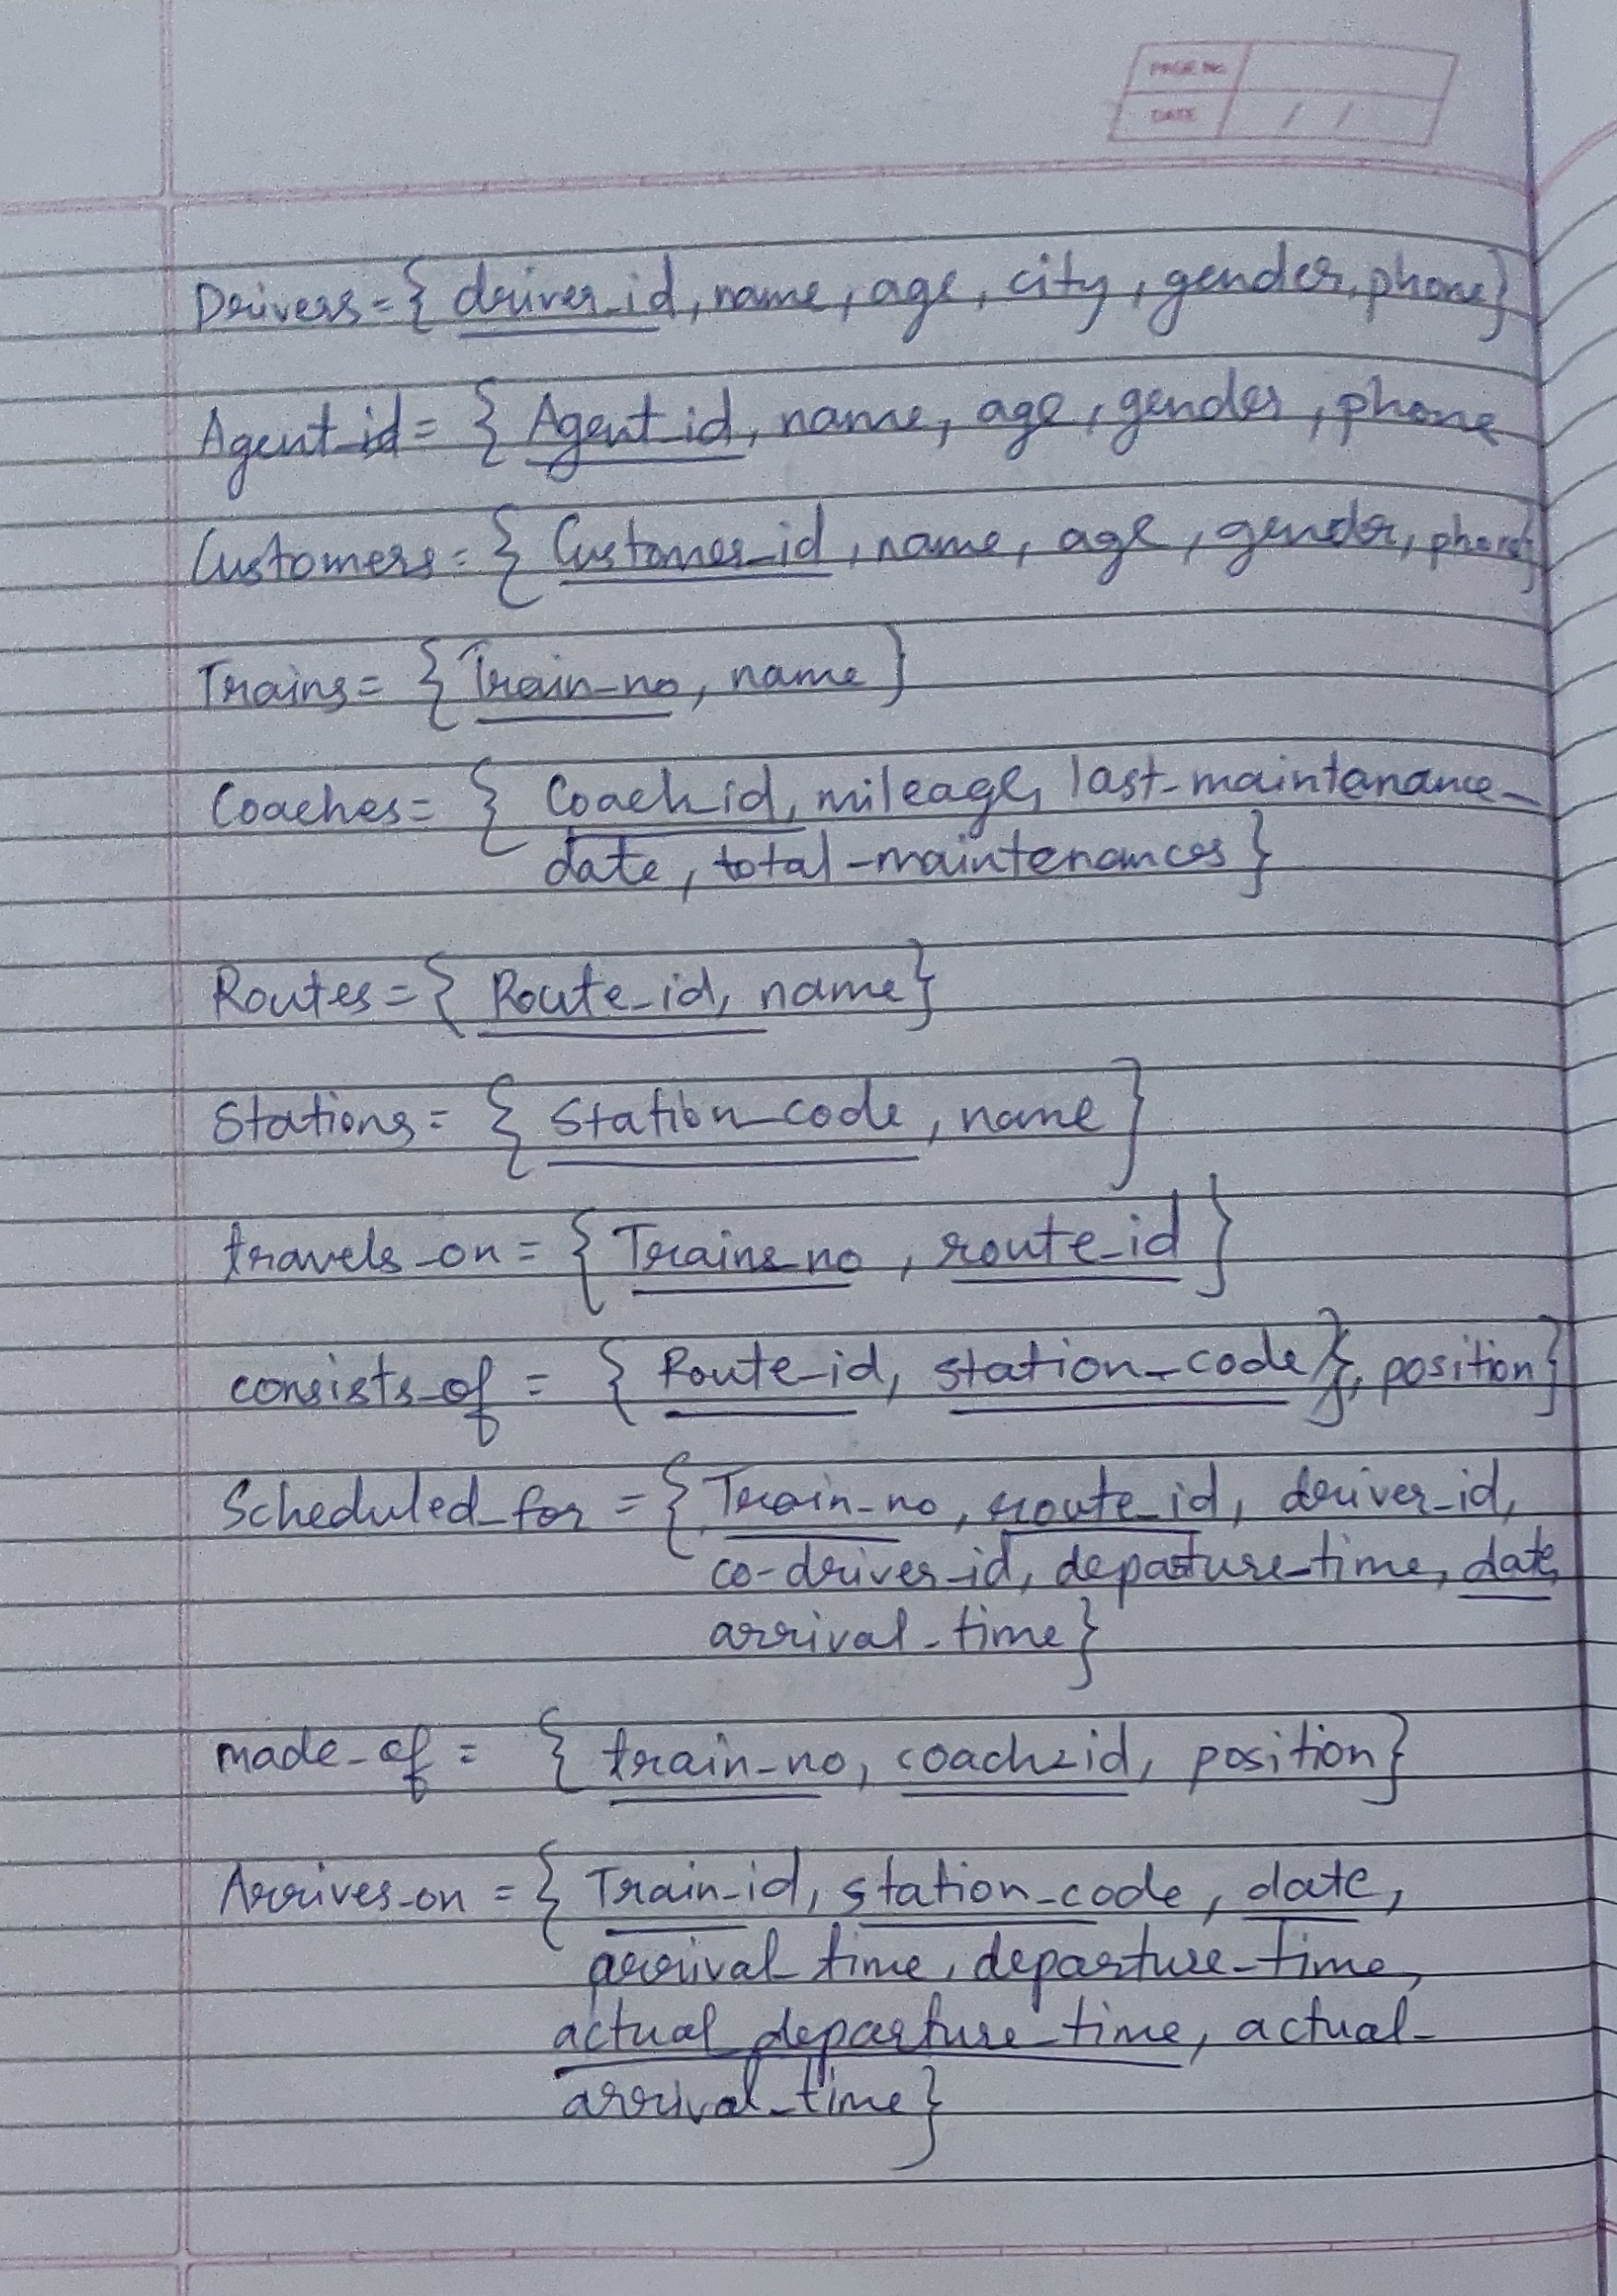 PAGE NO.
DATE / /
Drivers = { driver_id, name, age, city, gender, phone}
Agent_id = { Agent_id, name, age, gender, phone
Customers = { Customer_id, name, age, gender, phone}
Trains = { Train_no, name }
Coaches = { Coach_id, mileage, last-maintanance_
date, total-maintenances }
Routes = { Route_id, name}
Stations = { Station_code, name }
travels_on = { Trains_no, route_id }
consists_of = { Route_id, station_code}, position}
Scheduled_for = { Train_no, route_id, driver_id,
co-driver_id, departure_time, date,
arrival_time}
made_of = { train_no, coach_id, position}
Arrives_on = { Train_id, station_code, date,
arrival_time, departure_time,
actual_departure_time, actual_
arrival_time}